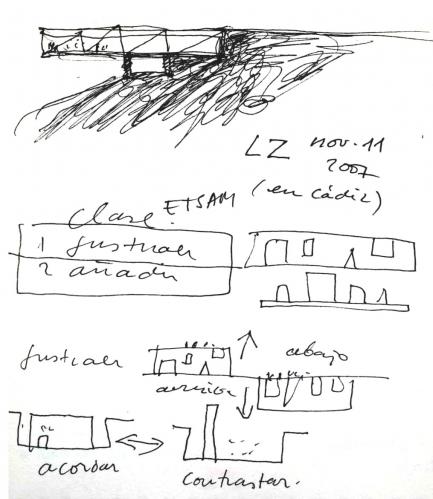 LZ nov. 11
2007
(en Cádiz)
Clase: ETSAM
1 sustraer
2 añadir
sustraer
abajo
acordar
contrastar.